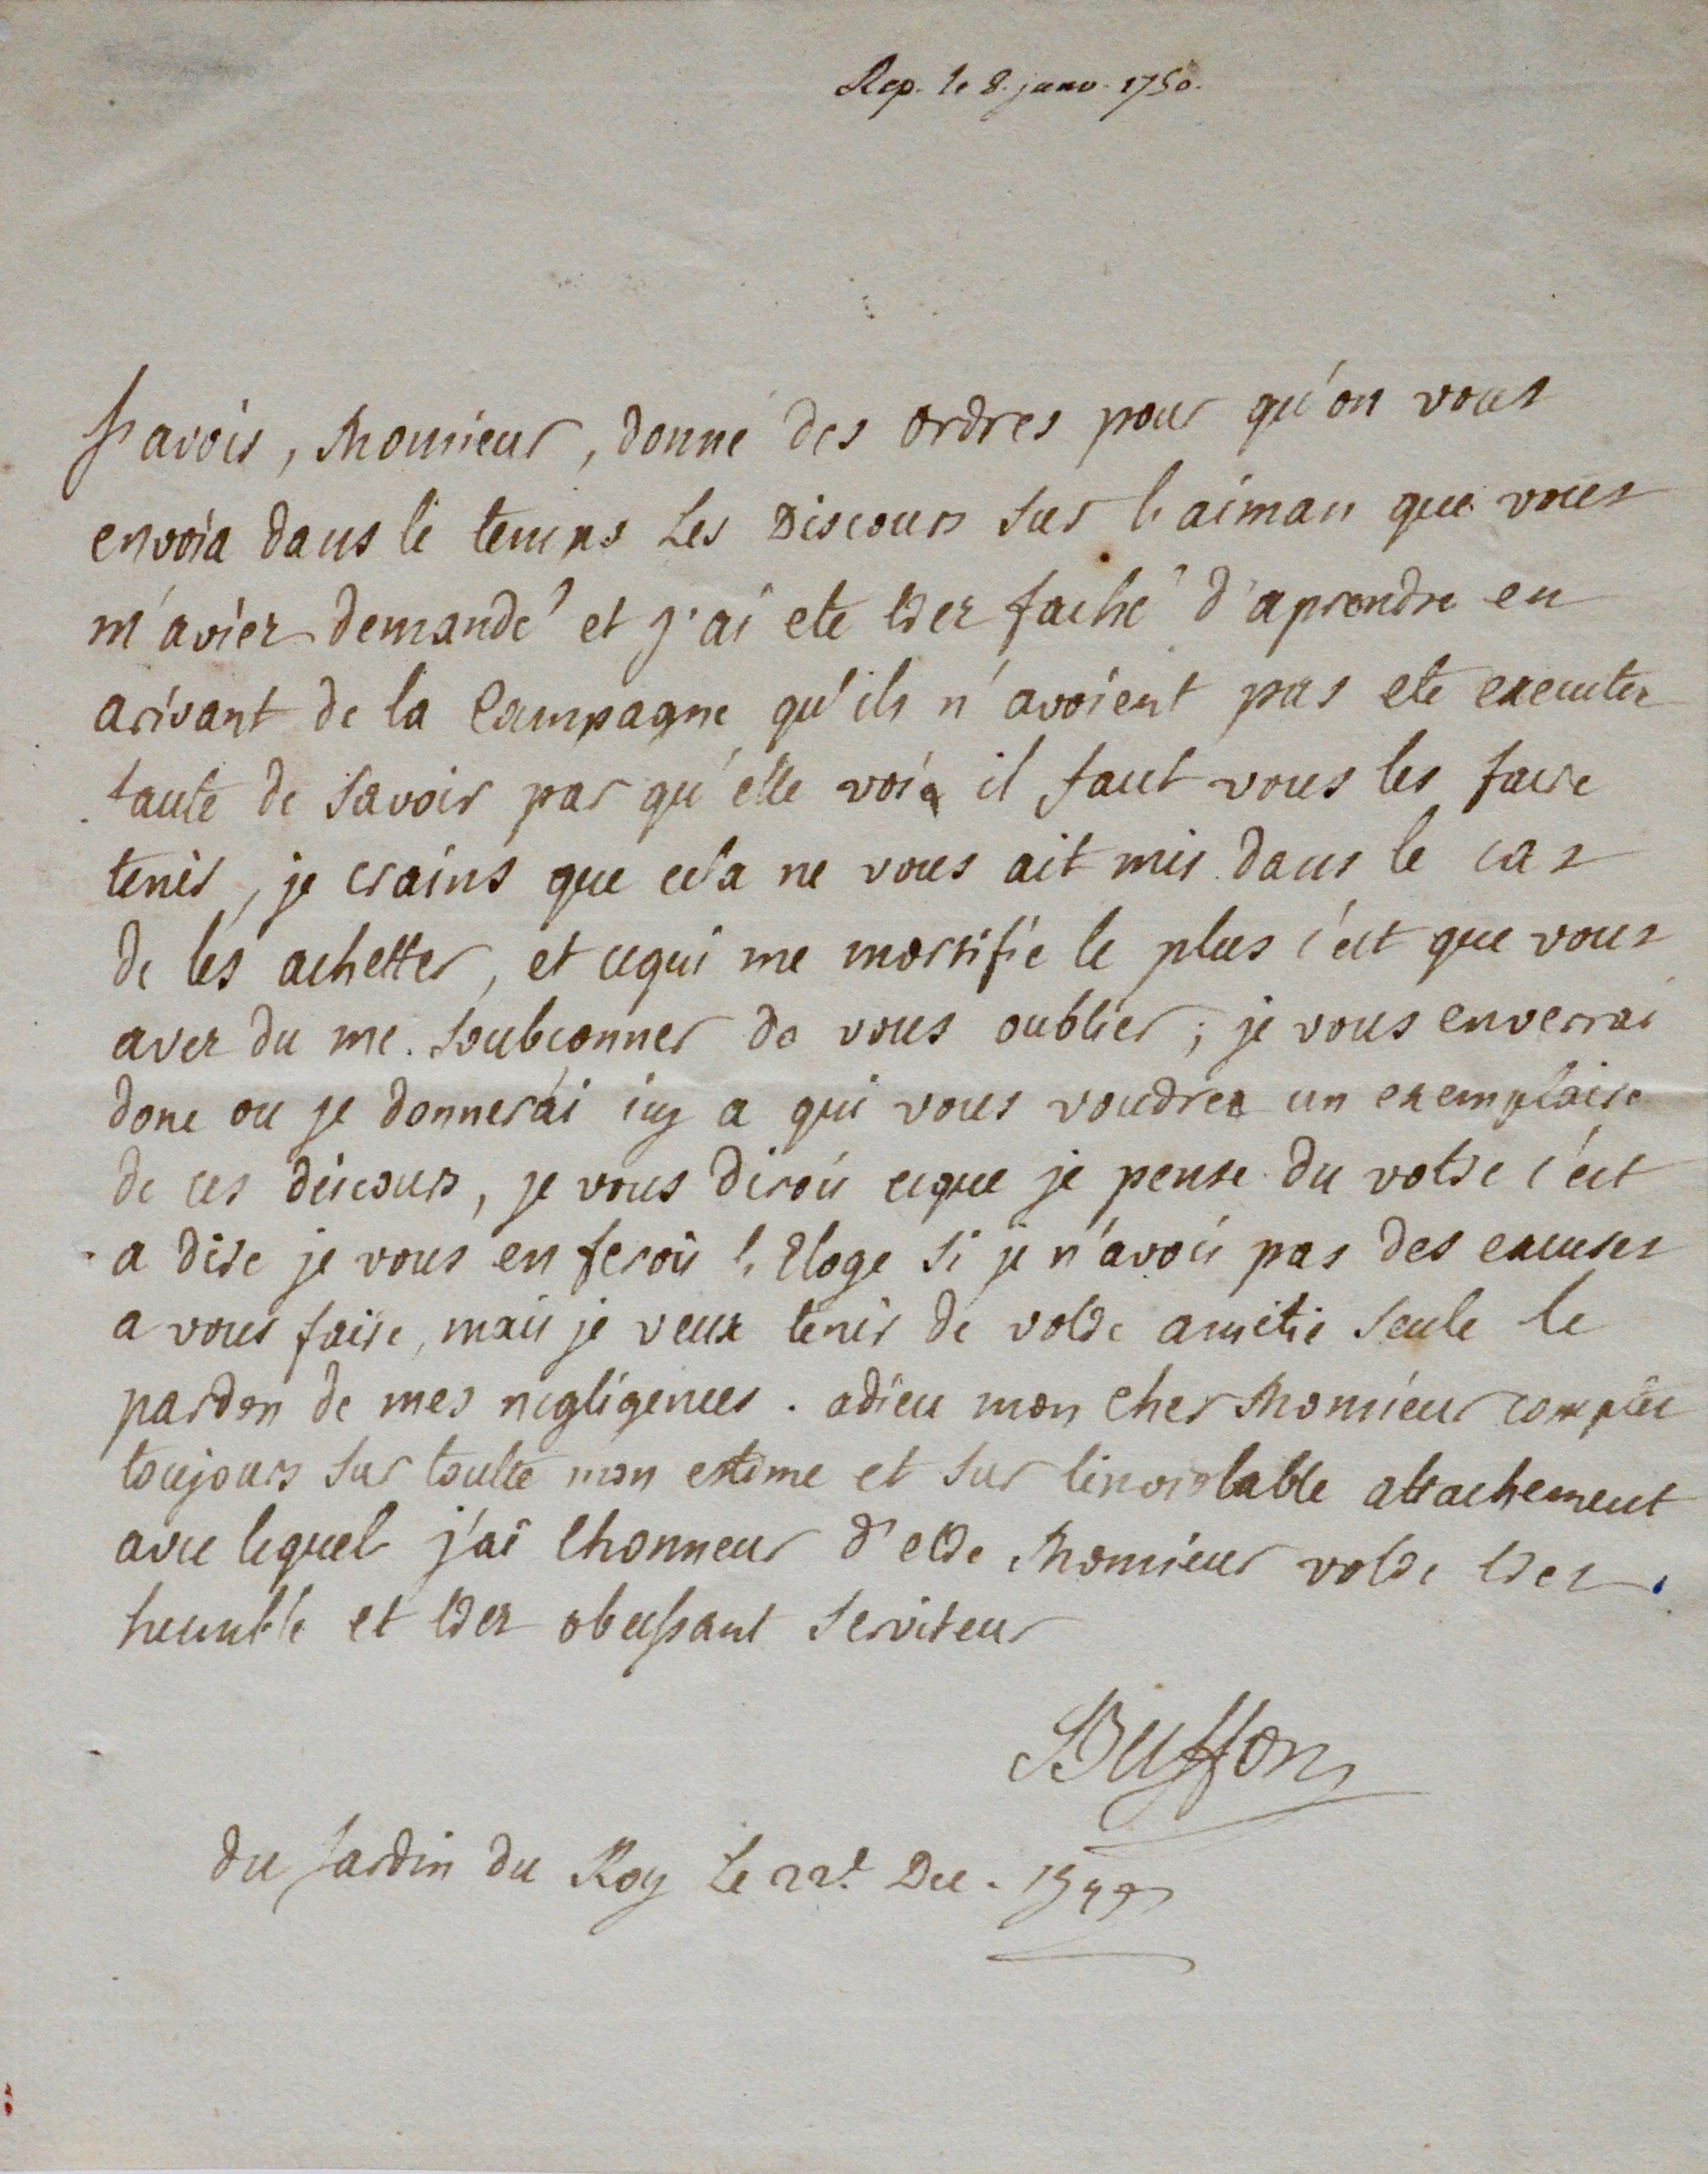 Rep. le 8. janv. 1750.
J'avois, Monsieur, donné des ordres pour qu'on vous
envoïa dans le temps les Discours sur l'aiman que vous
m'aviez demandé et j'ai ete tres faché d'aprendre en
arivant de la Campagne qu'ils n'avoient pas ete executez
faute de savoir par qu'elle voïe il faut vous les faire
tenir, je crains que cela ne vous ait mis dans le cas
de les achetter, et cequi me mortifie le plus c'est que vous
avez du me soubconner de vous oublier; je vous enverrai
donc ou je donnerai icy a qui vous voudrez un exemplaire
de ces discours, je vous dirois ceque je pense du votre c'est
a dire je vous en ferois l'Eloge si je n'avois pas des excuses
a vous faire, mais je veux tenir de votre amitie seule le
pardon de mes negligences. adieu mon cher Monsieur comptez
toujours sur toutte mon estime et sur linviolable attachement
avec lequel j'ai lhonneur d'etre Monsieur votre tres
humble et tres obeissant serviteur
Buffon
du Jardin du Roy le 22.e Dec. 1749